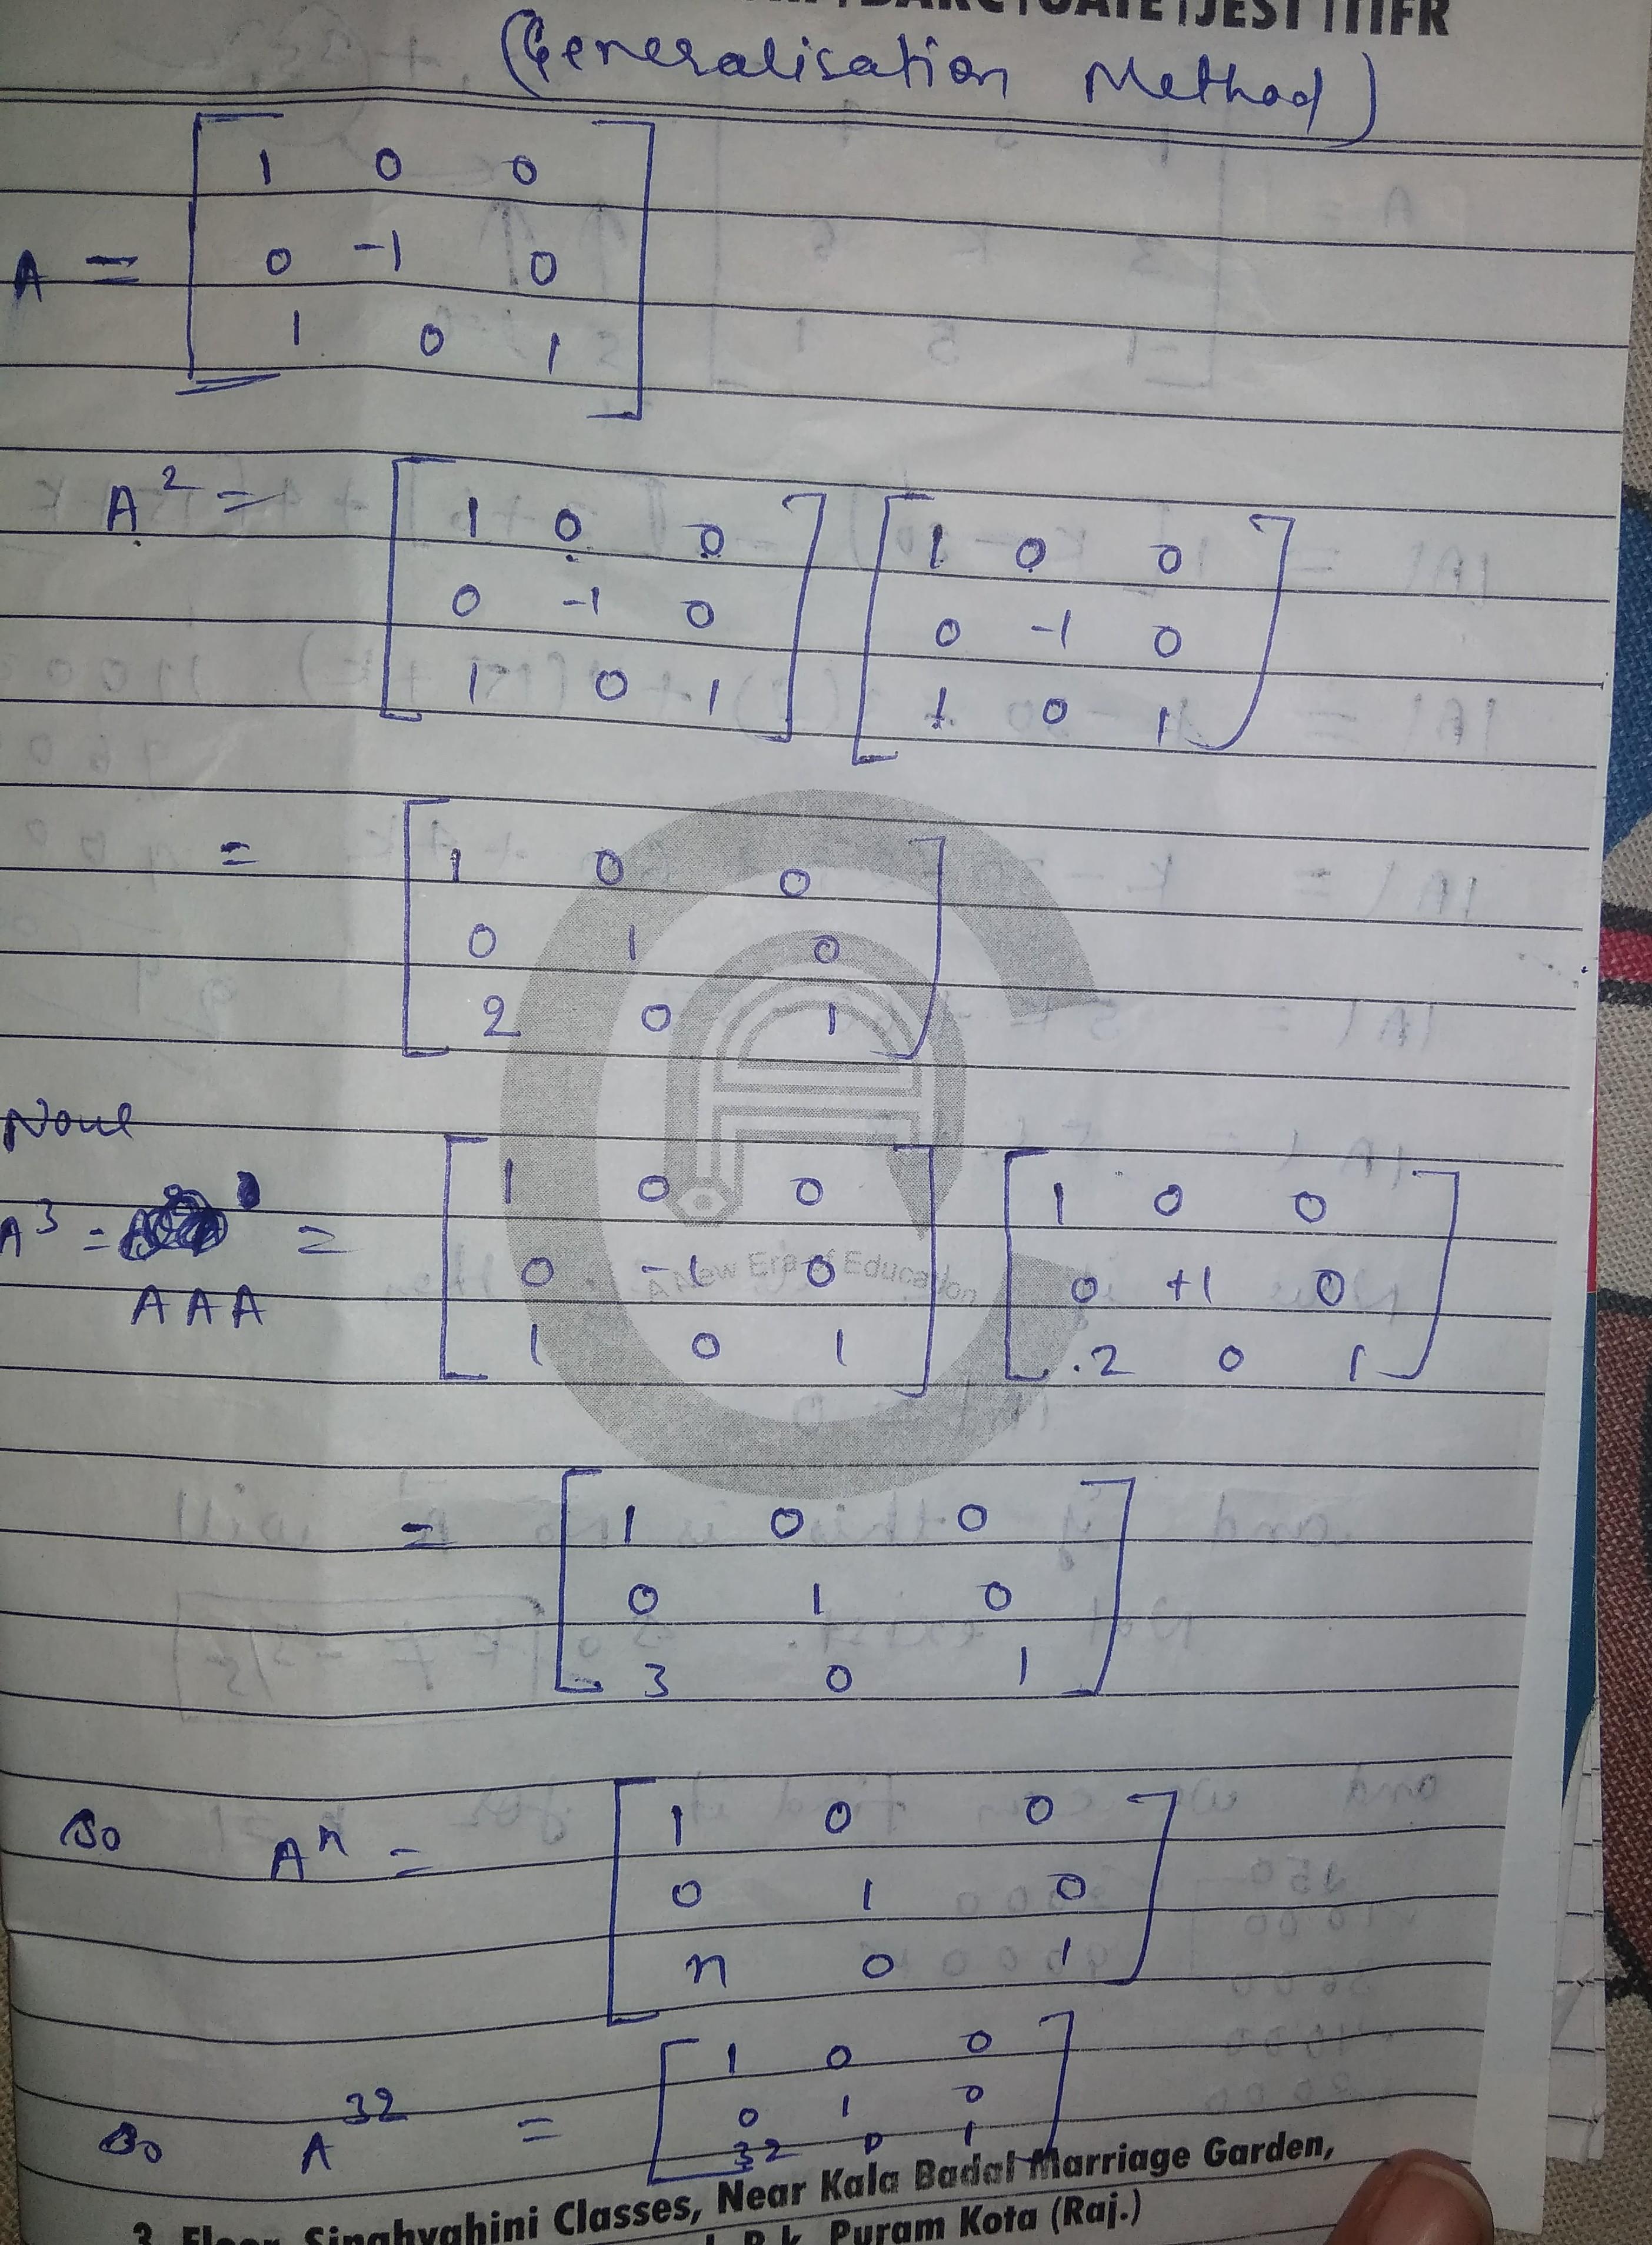 GATE|JEST|TIFR
(Generalisation Method)
A = [ 1 0 0
0 -1 0
1 0 1 ]
A² = [ 1 0 0
0 -1 0
1 0 1 ] [ 1 0 0
0 -1 0
1 0 1 ]
= [ 1 0 0
0 1 0
2 0 1 ]
A³ = = [ 1 0 0
0 -1 0
1 0 1 ] [ 1 0 0
0 +1 0
.2 0 1 ]
AAA
A New Era of Education
= [ 1 0 0
0 1 0
3 0 1 ]
So Aⁿ = [ 1 0 0
0 1 0
n 0 1 ]
So A³² = [ 1 0 0
0 1 0
32 0 1 ]
Singhvahini Classes, Near Kala Badal Marriage Garden,
Puram Kota (Raj.)